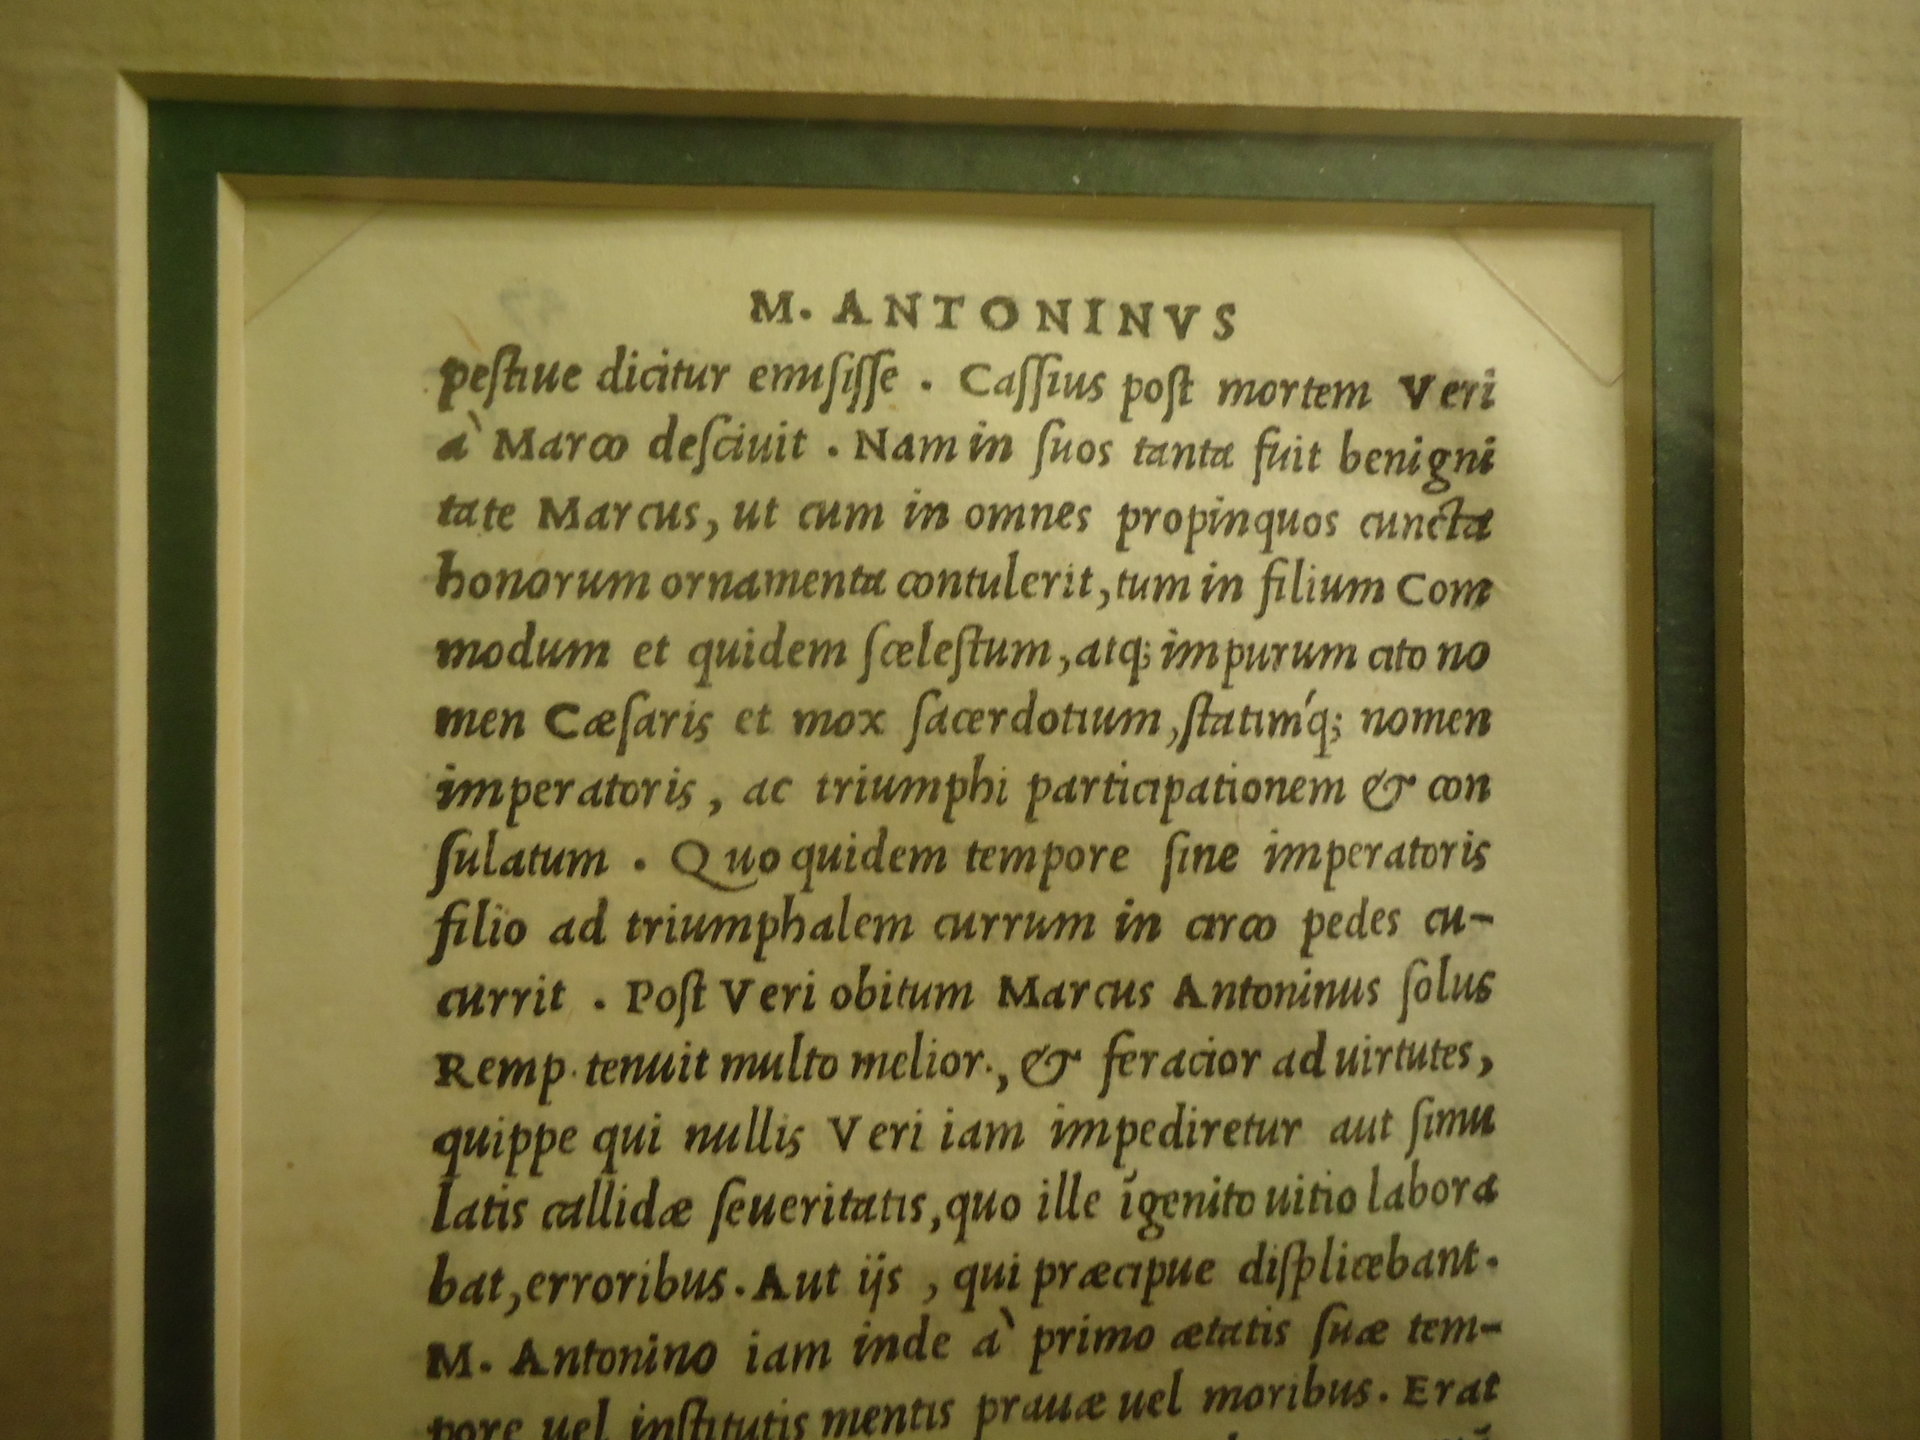 M. ANTONINVS
peſtiue dicitur emiſiſſe . Caſſius poſt mortem Veri
à Marco deſciuit . Nam in ſuos tanta fuit benigni
tate Marcus, ut cum in omnes propinquos cuncta
honorum ornamenta contulerit, tum in filium Com
modum et quidem ſceleſtum, atq; impurum cito no
men Cæſaris et mox ſacerdotium, ſtatimq́; nomen
imperatoris, ac triumphi participationem & con
ſulatum . Quo quidem tempore ſine imperatoris
filio ad triumphalem currum in circo pedes cu-
currit . Poſt Veri obitum Marcus Antoninus ſolus
Remp. tenuit multo melior., & feracior ad uirtutes,
quippe qui nullis Veri iam impediretur aut ſimu
latis callidæ ſeueritatis, quo ille īgenito uitio labora
bat, erroribus. Aut ijs , qui præcipue diſplicebant.
M. Antonino iam inde à primo ætatis ſuæ tem-
pore uel inſtitutis mentis prauæ uel moribus. Erat